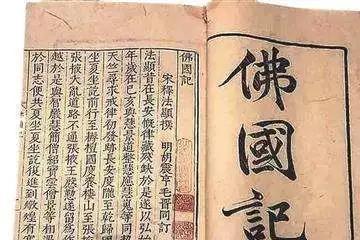 佛國記
佛國記
宋釋法顯撰 明胡震亨毛晉同訂
法顯昔在長安慨律藏殘缺於是遂以弘始
年歲在己亥與慧景道整慧應慧嵬等同契
天竺尋求戒律初發跡長安度隴至乾歸
坐夏坐訖前行至褥檀國度養樓山至張掖
張掖大亂道路不通張掖王慇懃遂留為作
越於是與智嚴慧簡僧紹寶雲僧景等相遇
於同志便共夏坐夏坐訖復進到燉煌有